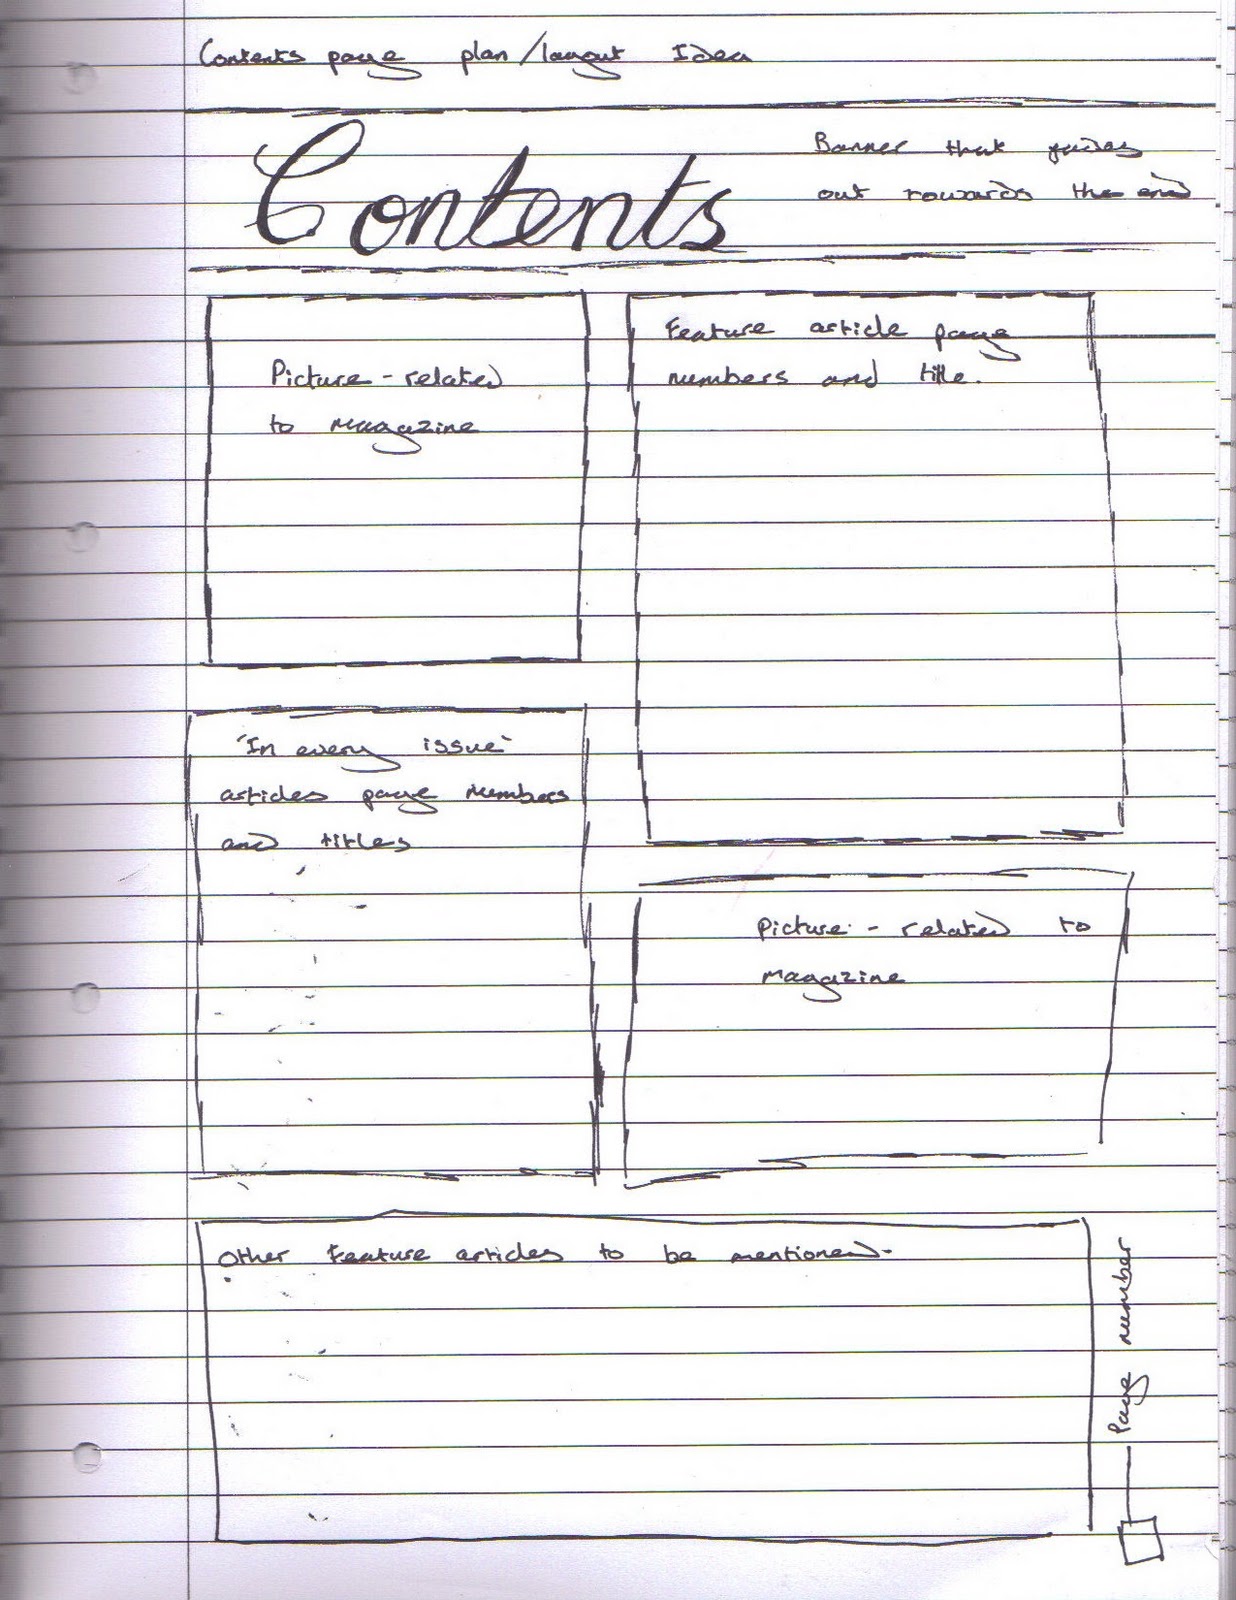 Contents page plan/layout Idea
Contents
Banner that guides
out towards the end
Picture - related
to magazine
Feature article page
numbers and title.
'In every issue'
articles page numbers
and titles
Picture - related to
magazine
Other Feature articles to be mentioned.
Page number